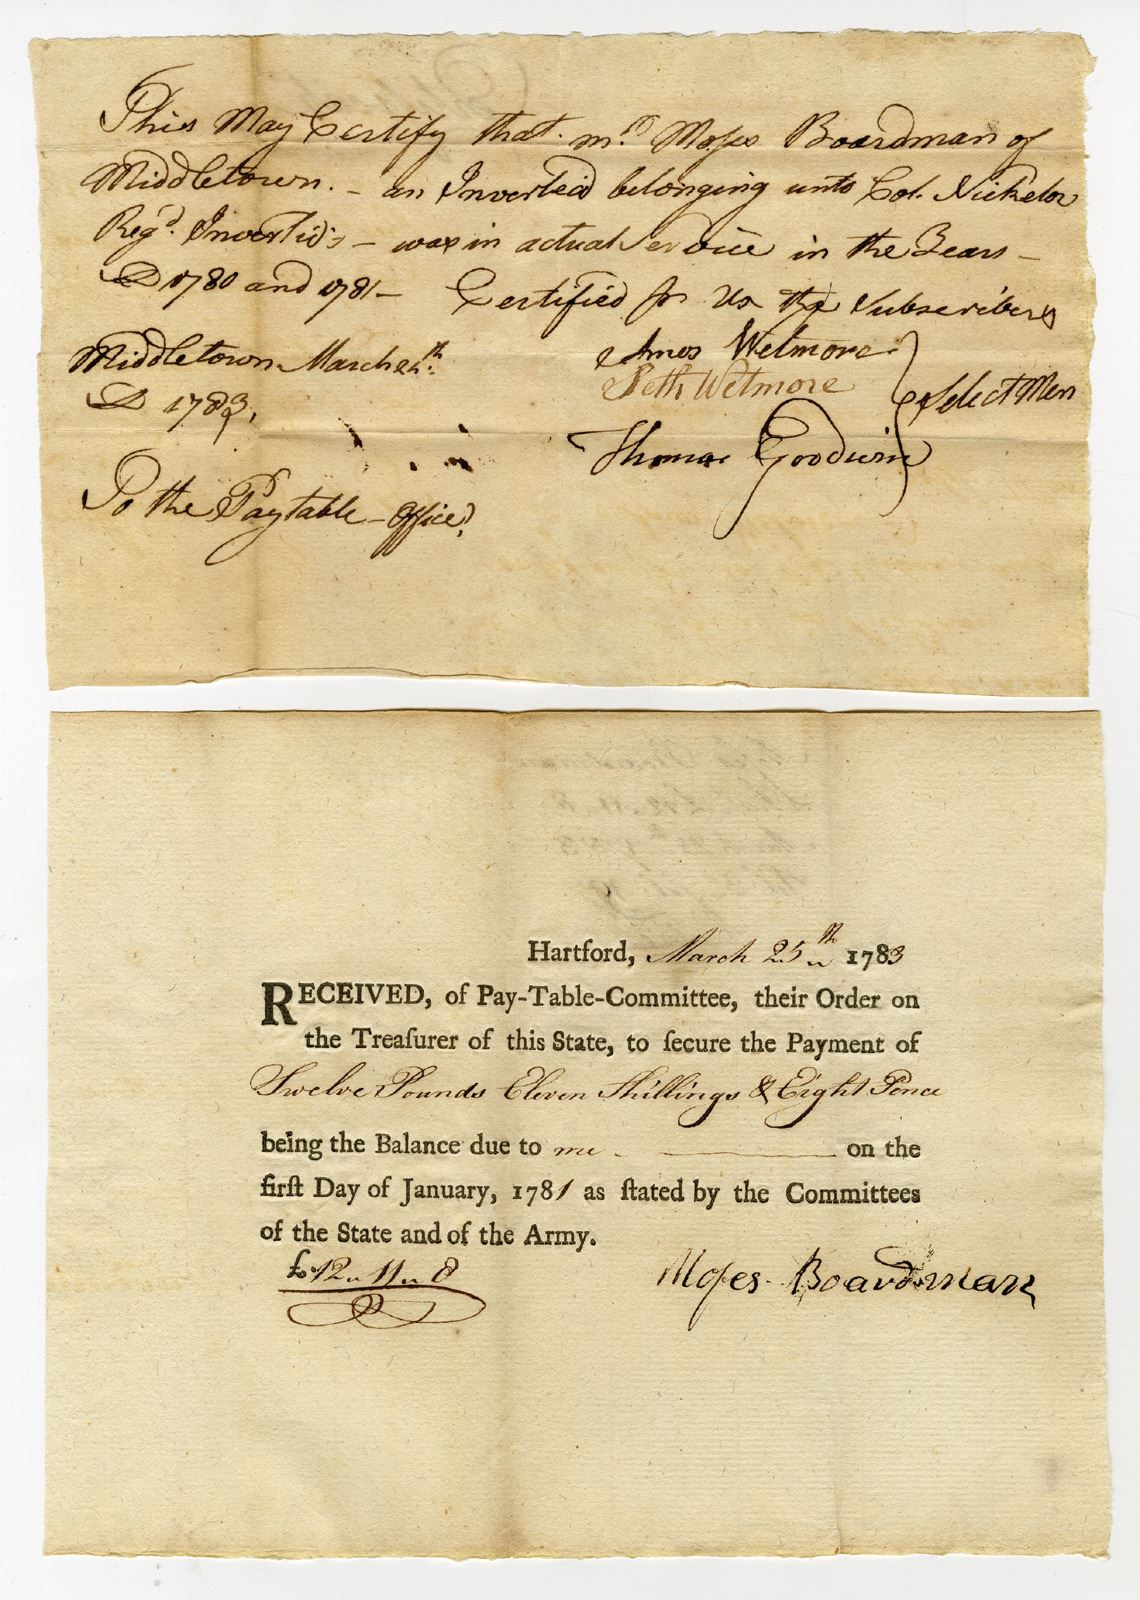 This May Certify that mr. Moses Boardman of
Middletown. - an Inverleid belonging unto Col. Nickelos
Regd. Inverlid's - was in actual Service in the Years -
D 1780 and 1781 - Certified pr Us the Subscribers
Amos Wetmore
Middletown March
Seth Wetmore
Select Men
D 1783,
Thomas Goodwin
To the Paytable - Office,
Hartford, March 25th 1783
RECEIVED, of Pay-Table-Committee, their Order on
the Treaſurer of this State, to ſecure the Payment of
Twelve Pounds Eleven Shillings & Eight Pence
being the Balance due to me on the
firſt Day of January, 1781 as ſtated by the Committees
of the State and of the Army.
£12 „ 11 „ 8
Moses Boardman